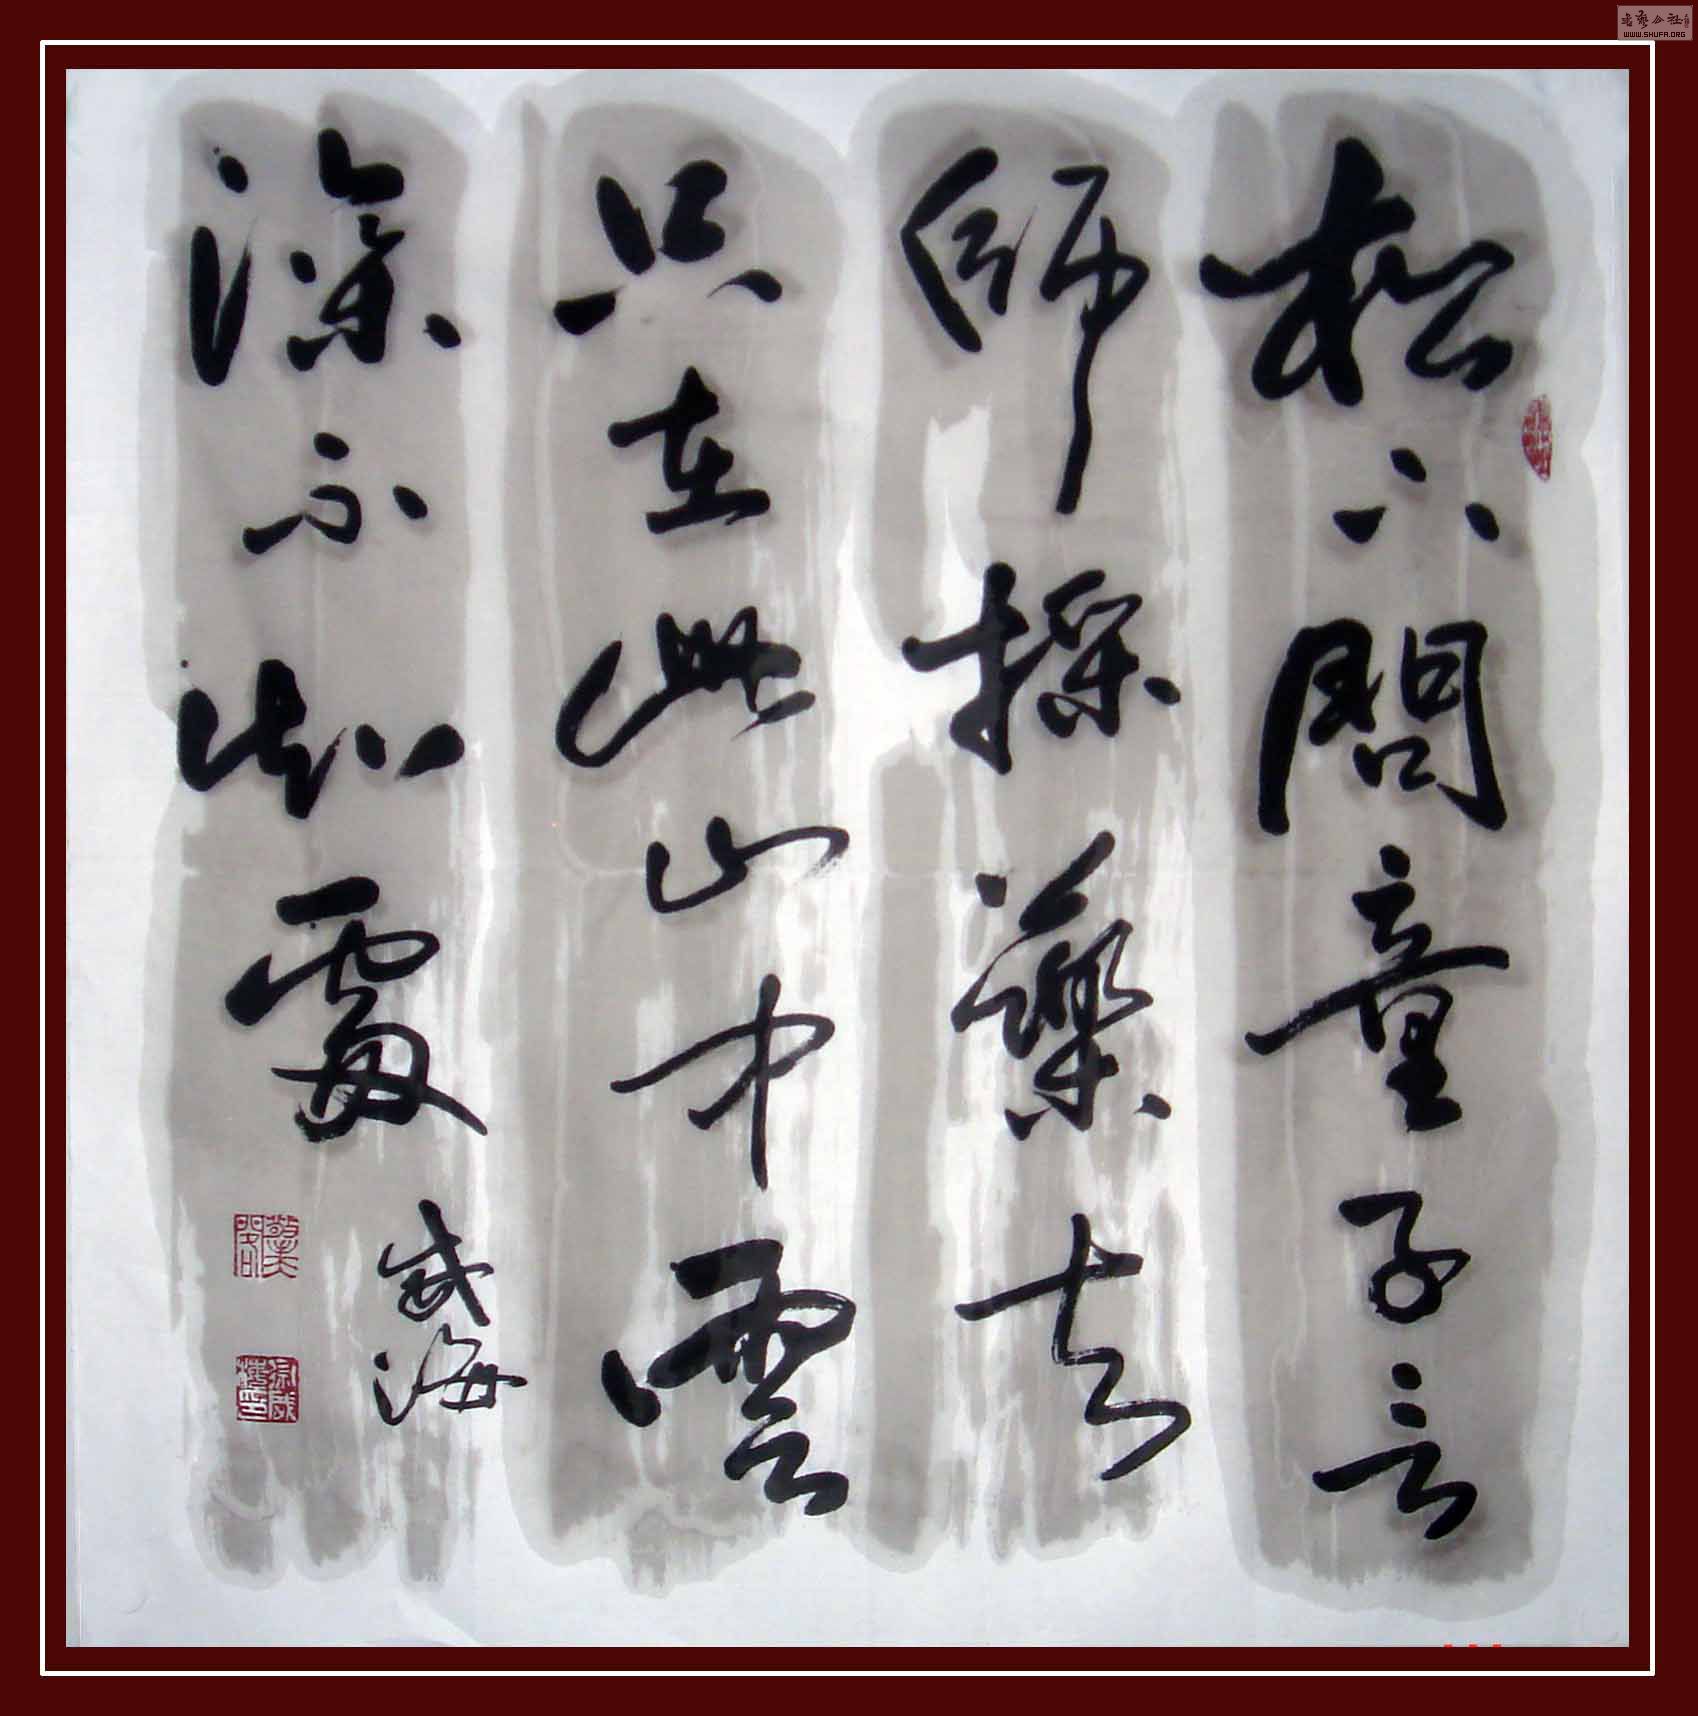 松下問童子言
師採藥去
只在此山中雲
深不知處
威海
WWW.SHUFA.ORG